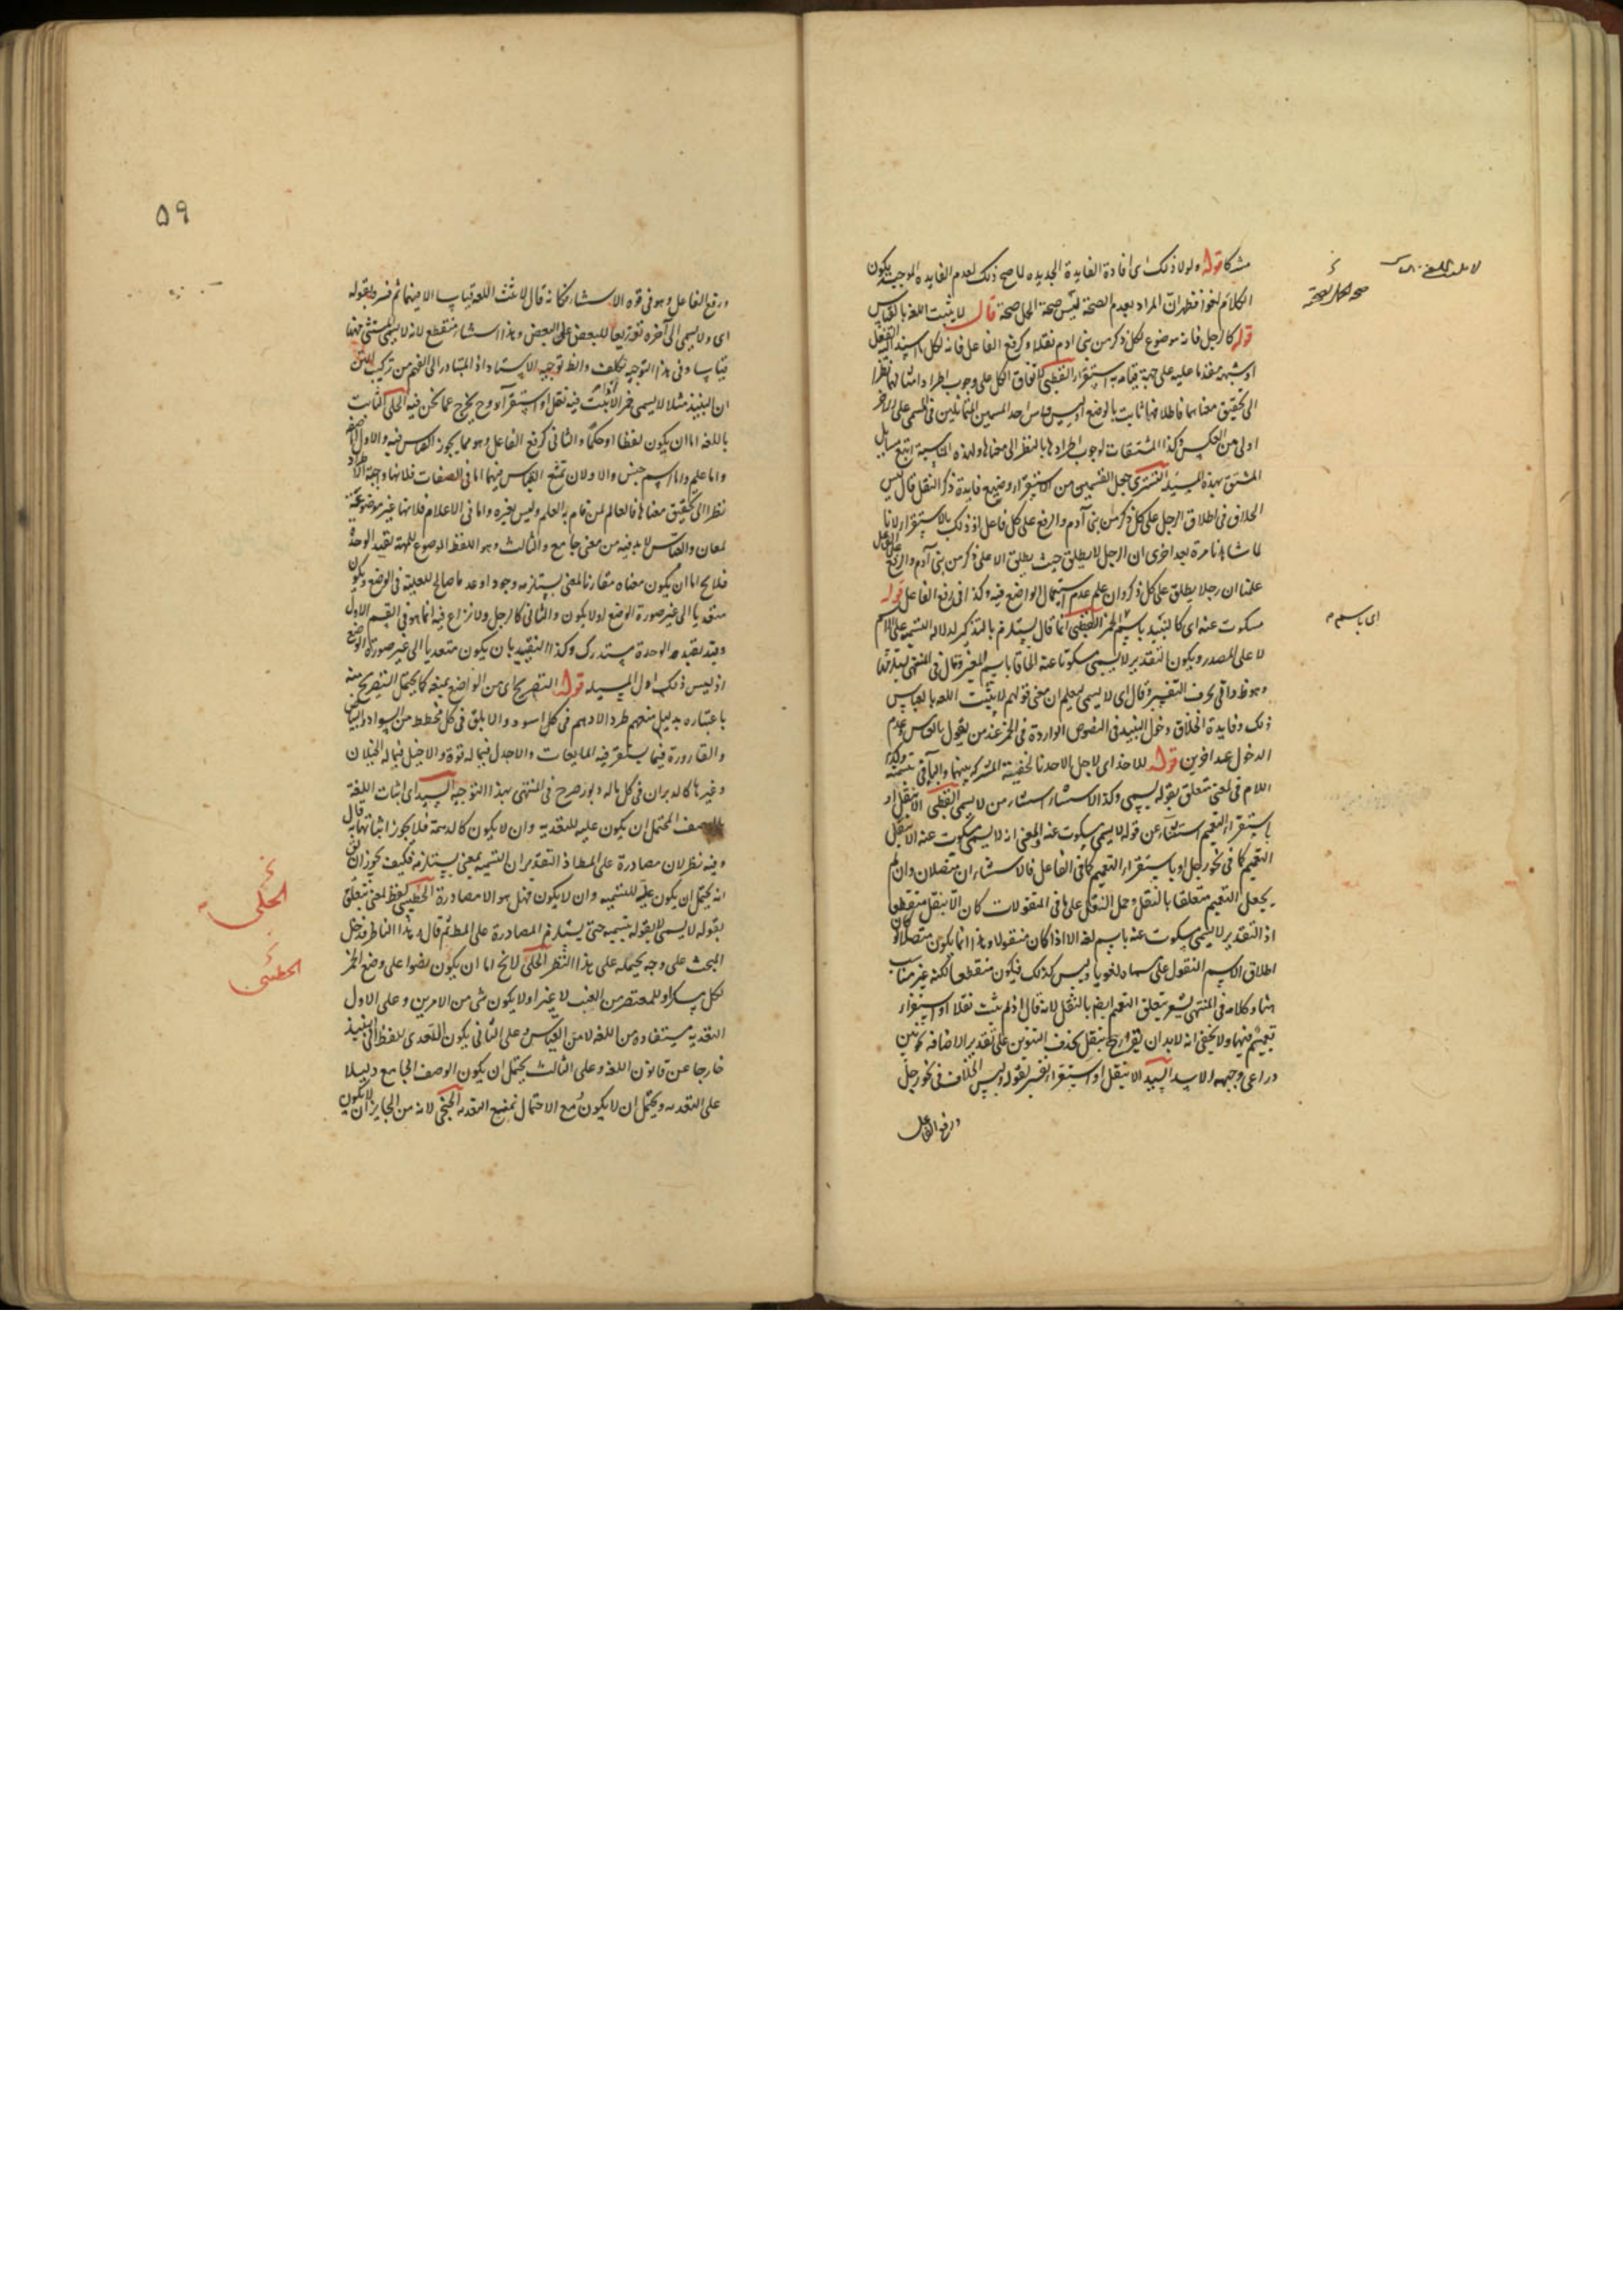 مشركا قوله ولولا ذلك اى افادة الفايدة الجديده لما صح ذلك لعدم الفايده الموجبة يكون
الكلام لغوا فظهر ان المراد بعدم الصحة ليس صحة الحمل صحة قال لا يثبت اللغة بالقياس
قوله كالرجل فانه موضوع لكل ذكر من بنى ادم نقلا وكرفع الفاعل فانه لكل ما اسند اليه الفعل
او شبهه مقدما عليه على جهة قيامه به استقراء القطبى لاتفاق الكل على وجوب اطراد امثالهما نظرا
الى تحقيق معناهما فاطلاقهما ثابت بالوضع اذ ليس قياس احد المسميين المتماثلين فى المسمى على الاخر
اولى من العكس وكذا المشتقات لوجوب اطرادها بالنظر الى معناها ولهذه المناسبة اتبع مسايل
المشتق بهذه المسئلة التسترى جعل القسمين من الاستقراء وضيع فايدة ذكر النقل قال ليس
الخلاف فى اطلاق الرجل على كل ذكر من بنى آدم والرفع على كل فاعل اذ ذلك بالاستقراء لانا
لما شاهدنا مرة بعد اخرى ان الرجل لا يطلق حيث يطلق الا على ذكر من بنى آدم والرفع على الفاعل
علمنا ان رجلا يطلق على كل ذكر وان علم عدم استعمال الواضع فيه وكذا فى رفع الفاعل قوله
مسكوت عنه اى كالنبيذ باسم الخمر القطبى انما قال يستلزم بالتذكير لدلالة التسمية على الاسم
لا على المصدر ويكون التقدير لا يسمى مسكوتا عنه الحاقا باسم لغيره وقال فى المنتهى
وهو ظ واتى بحرف التفسير وقال اى لا يسمى ليعلم ان معنى قولهم لا يثبت اللغة بالقياس
ذلك وفايدة الخلاف دخول النبيذ فى النصوص الواردة فى الخمر عند من يقول بالقياس وعدم
الدخول عند اخرين قوله للاخذ اى لاجل الاخذ بالخفية المشتركة بينهما والباقى تتمته وكذا
اللام فى لمعنى متعلق بقوله يسمى وكذا الاستثناء استثناء من لا يسمى القطبى الا بنقل او
باستقراء التعميم استثناء عن قوله لا يسمى مسكوت عنه والمعنى انه لا يسمى مسكوت عنه الا بنقل
التعميم كما فى نحو رجل او باستقراء التعميم كما فى الفاعل فالاستثناءان متصلان وان لم
يجعل التعميم متعلقا بالنقل وحمل النقل على ما فى المنقولات كان الا بنقل منقطعا
اذ التقدير لا يسمى مسكوت عنه باسم لغة الا اذا كان منقولا وهذا انما يكون متصلا لو كان
اطلاق الاسم المنقول على مسماه لغويا وليس كذلك فيكون منقطعا لكنه غير مناسب
هنا وكلامه فى المنتهى يشعر بتعلق التعميم ايضا بالنقل لانه قال اذ لم يثبت نقلا او استقراء
تعميم فيهما ولا يخفى انه لا بد ان يقرأ ح بنقل بحذف التنوين على تقدير الاضافة
السيد الا بنقل او استقراء تفسير لقوله وليس الخلاف فى نحو رجل
ورفع الفاعل
صحة الحمل صحة
اى باسم
٥٩
ورفع الفاعل وهو فى قوة الاستثناء فكانه قال لا تثبت اللغة قياسا الا فيهما ثم فسر بقوله
اى ولا يسمى الى آخره تفريعا للبعض على البعض وهذا استثناء منقطع لانه لا يسمى شئ فيهما
قياسا وفى هذا التوجيه تكلف والظ توجيه الاستاد اذ المتبادر الى الفهم من تركيب المتن
ان النبيذ مثلا لا يسمى خمرا الا اذا ثبت فيه نقل او استقراء وح يخرج عما نحن فيه الحلى الثابت
باللغة اما ان يكون لفظا او حكما والثانى كرفع الفاعل وهو مما يجوز القياس فيه والاول اما صفة
واما علم واما اسم جنس والاولان تمتنع القياس فيهما اما فى الصفات فلانها واجبة الاطراد
نظرا الى تحقيق معناها فالعالم لمن قام به العلم وليس لغيره واما فى الاعلام فلانها غير موضوعة
لمعان والقياس لا بد فيه من معنى جامع والثالث وهو اللفظ الموضوع للمهية بقيد الوحدة
فلا يخ اما ان يكون معناه مقارنا لمعنى يستلزمه وجودا وعدما صالح للعلية فى الوضع ويكون
متعديا الى غير صورة الوضع او لا يكون والثانى كالرجل ولا نزاع فيه انما هو فى القسم الاول
وقيد بقيده الوحدة مستدرك وكذا التقييد بان يكون متعديا الى غير صورة الوضع
اذ ليس ذلك اول المسئلة قوله التصريح اى من الواضع بمنعه كما يحتمل التصريح منه
باعتباره بدليل منعهم طرد الادهم فى كل اسود والابلق فى كل مخطط من السواد والبياض
والقارورة فيما يستقر فيه المايعات والاجدل فيما له قوة والاخيل فيما له الخيلان
وغيرها كالدبران فى كل ما له دبور صرح فى المنتهى بهذا التوجيه السيد اى اثبات اللغة
بالوصف المحتمل ان يكون علية للتعدية وان لا يكون كالدسمة فلا يجوز اثباتها به قال
وفيه نظر لان مصادرة على المط اذ التقدير ان التسمية لمعنى يستلزمه فكيف يجوز ان يق
انه يحتمل ان يكون علية للتسمية وان لا يكون فهل هو الا مصادرة الخطيبى لفظ لمعنى متعلق
بقوله لا يسمى لا بقوله بتسمية حتى يستلزم المصادرة على المط ثم قال وهذا الناظر قد نقل
البحث على وجه يحمله على هذا النظر الحلى لا يخ اما ان يكون نصوا على وضع الخمر
لكل مسكر او للمعتصر من العنب لا غير او لا يكون شى من الامرين وعلى الاول
التعدية مستفادة من اللغة لا من القياس وعلى الثانى يكون التعدى للفظ الى النبيذ
خارجا عن قانون اللغة وعلى الثالث يحتمل ان يكون الوصف الجامع دليلا
على التعدية ويحتمل ان لا يكون ومع الاحتمال تمتنع التعدية الخنجى لانه من الجايز ان لا يكون
الحلى
الخطيبى